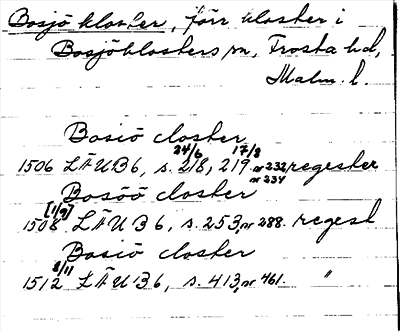 Bosjö kloster, förr kloster i
Bosjöklosters sn, Frosta hd,
Malm. l.
Bosiö closter
24/6 17/8
1506 LÄUB 6, s. 218, 219 nr 232 regester
nr 234
Bosöö closter
[1/9]
1508 LÄUB 6, s. 253, nr 288. regest
Bosiö closter
8/11
1512 LÄUB 6, s. 413, nr 461. "